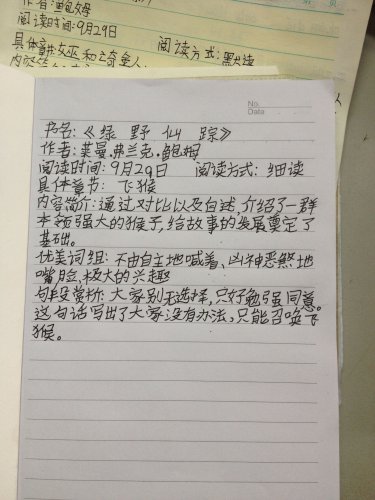 作者:鲍姆
阅读时间:9月29日
阅读方式:默读
No.
Date
书名:《绿野仙踪》
作者:莱曼.弗兰克.鲍姆
阅读时间:9月29日 阅读方式:细读
具体章节:飞猴
内容简介:通过对比以及自述,介绍了一群
本领强大的猴子,给故事的发展奠定了
基础。
优美词组:不由自主地喊着、凶神恶煞地
嘴脸、极大的兴趣
句段赏析:大家别无选择,只好勉强同意。
这句话写出了大家没有办法,只能召唤飞
猴。